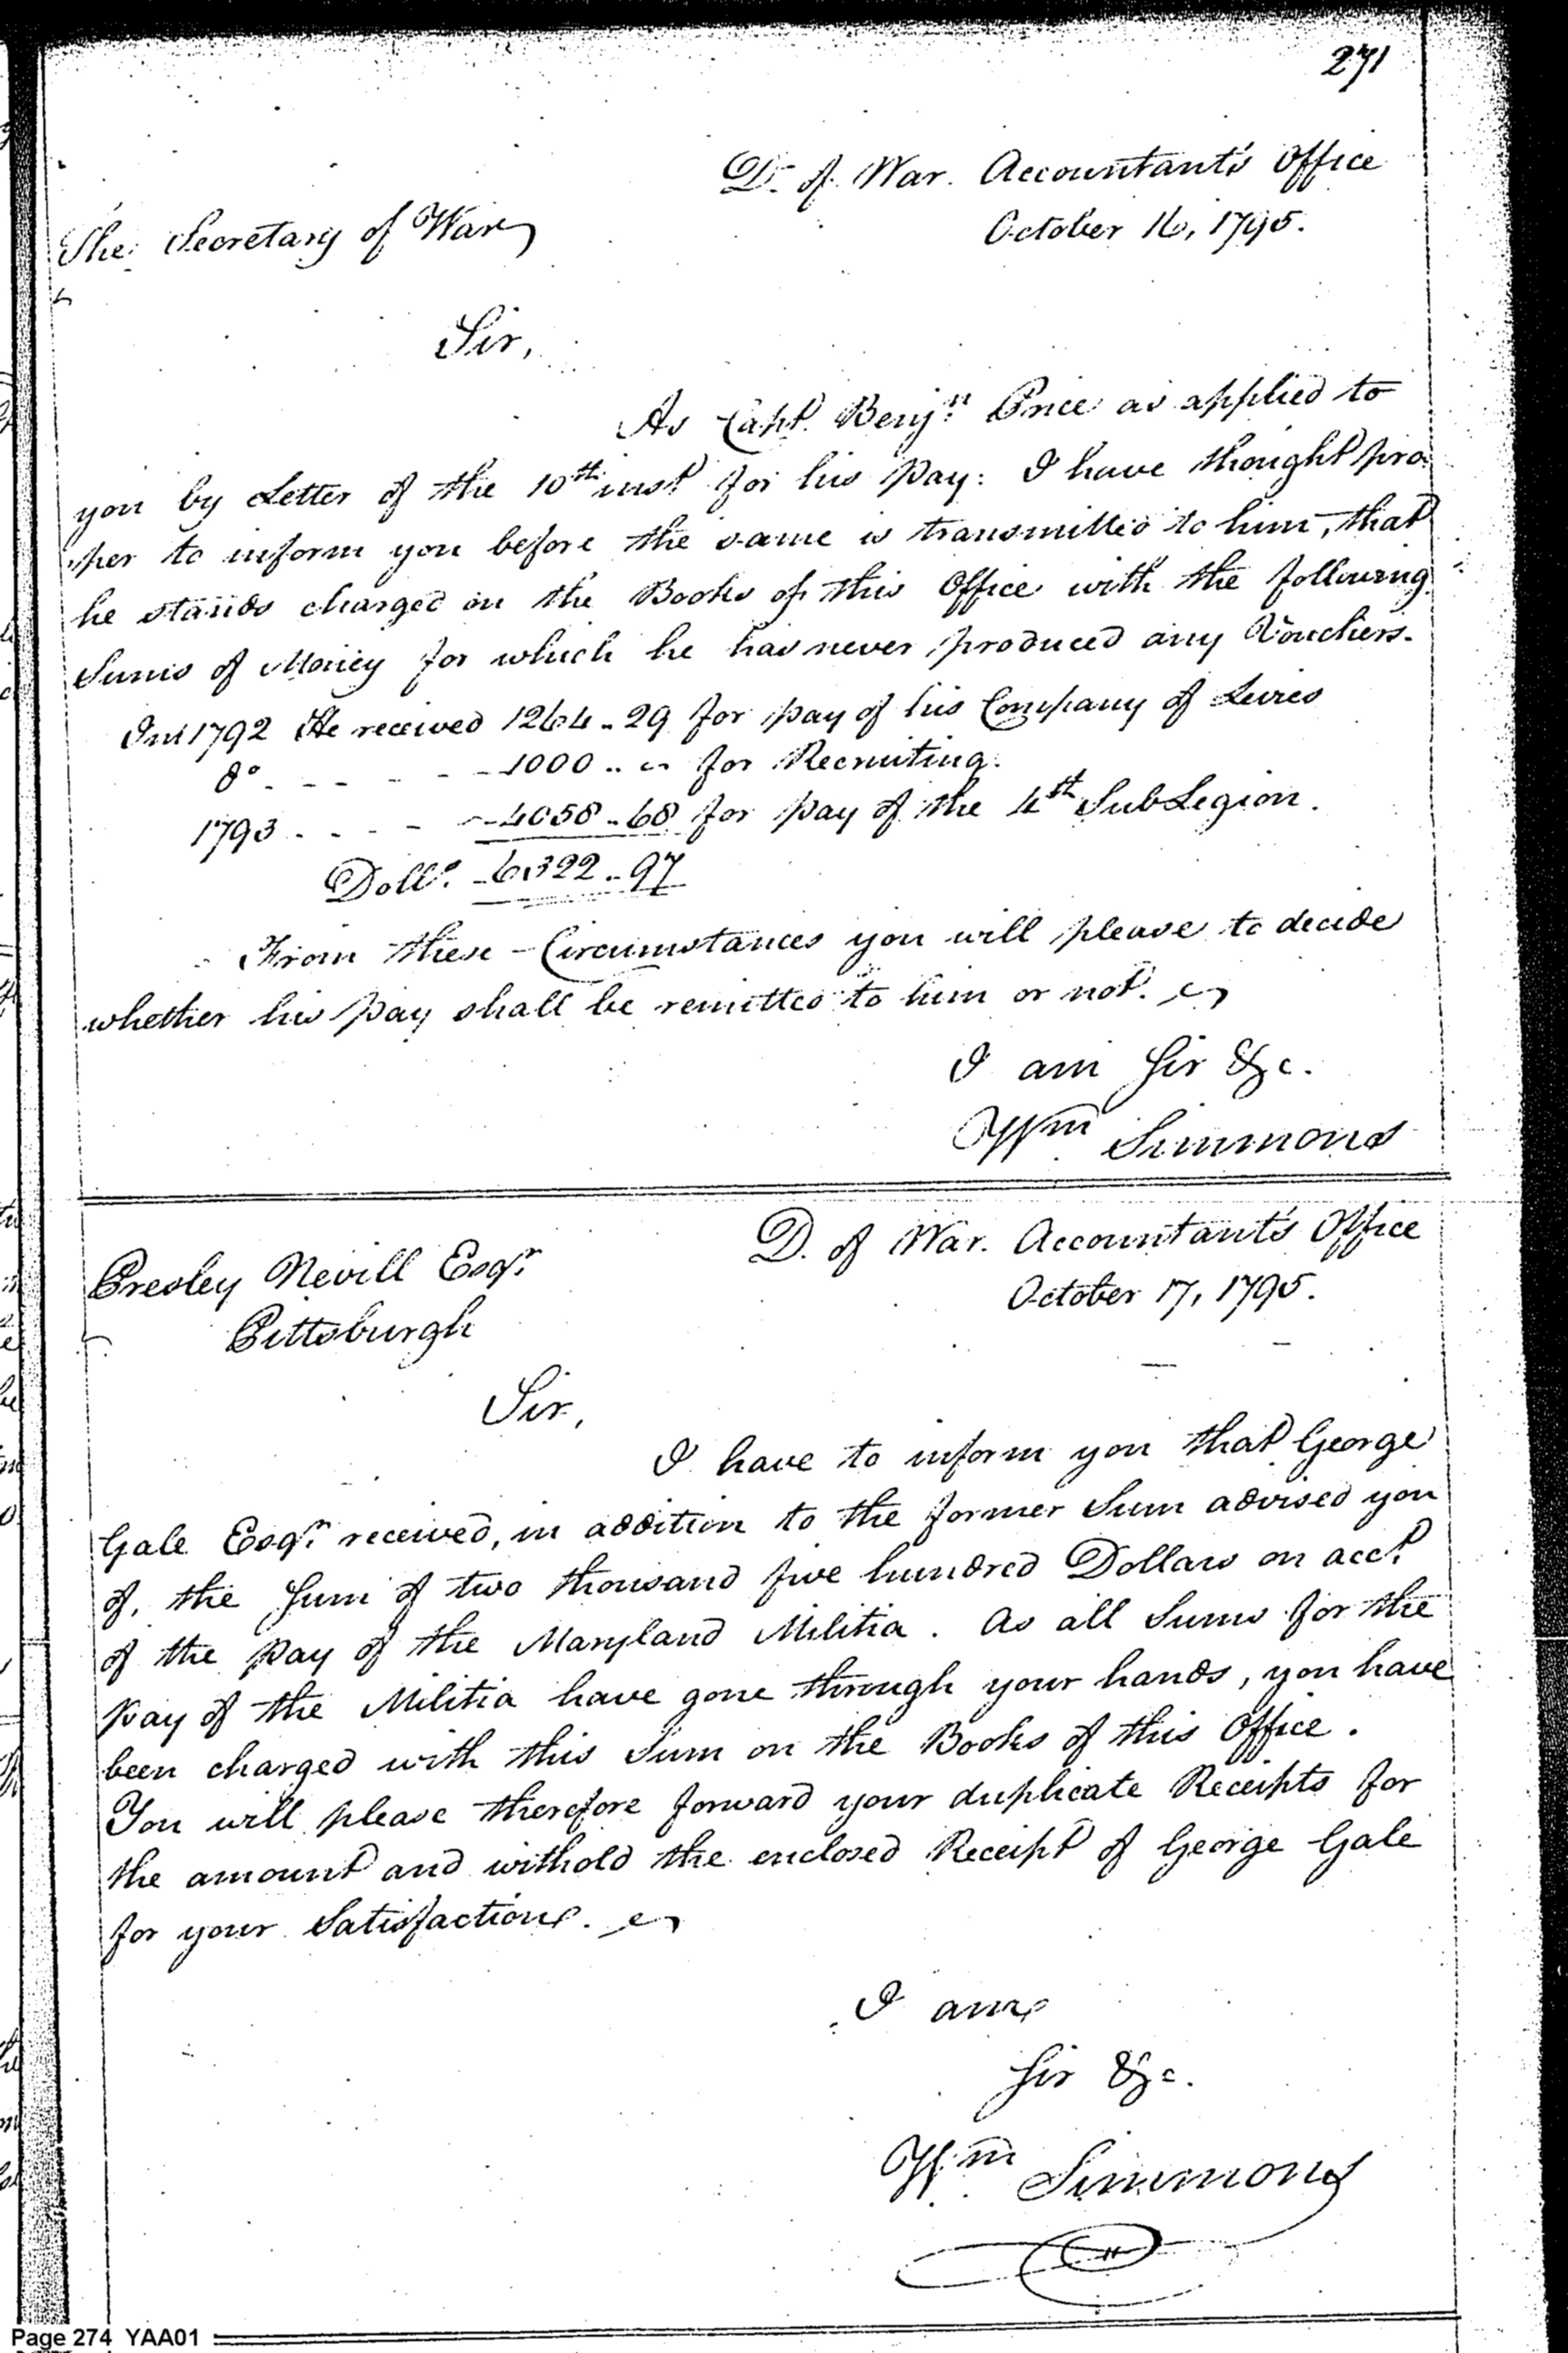 271
D. of War. Accountant's Office
October 16, 1795.
The Secretary of War
Sir,
As Capt. Benjn. Price as applied to
you by Letter of the 10th inst for his Pay: I have thought pro
per to inform you before the same is transmitted to him, that
he stands charged on the Books of this Office with the following
Sums of Money for which he has never produced any Vouchers.
In 1792 He received 1264 .. 29 for pay of his Company of Levies
do. - - - - - 1000 .. " for Recruiting.
1793 - - - - - 4058 .. 68 for pay of the 4th Sub Legion.
Dolls. 6322 .. 97
From these Circumstances you will please to decide
whether his Pay shall be remitted to him or not.
I am Sir &c.
Wm Simmons
D. of War. Accountant's Office
October 17, 1795.
Presley Nevill Esqr.
Pittsburgh
Sir,
I have to inform you that George
Gale Esqr. received, in addition to the former Sum advised you
of, the Sum of two thousand five hundred Dollars on acct.
of the pay of the Maryland Militia. As all Sums for the
pay of the Militia have gone through your hands, you have
been charged with this Sum on the Books of this Office.
You will please therefore forward your duplicate Receipts for
the amount and withold the enclosed Receipt of George Gale
for your Satisfaction.
I am
Sir &c.
Wm. Simmons
Page 274 YAA01